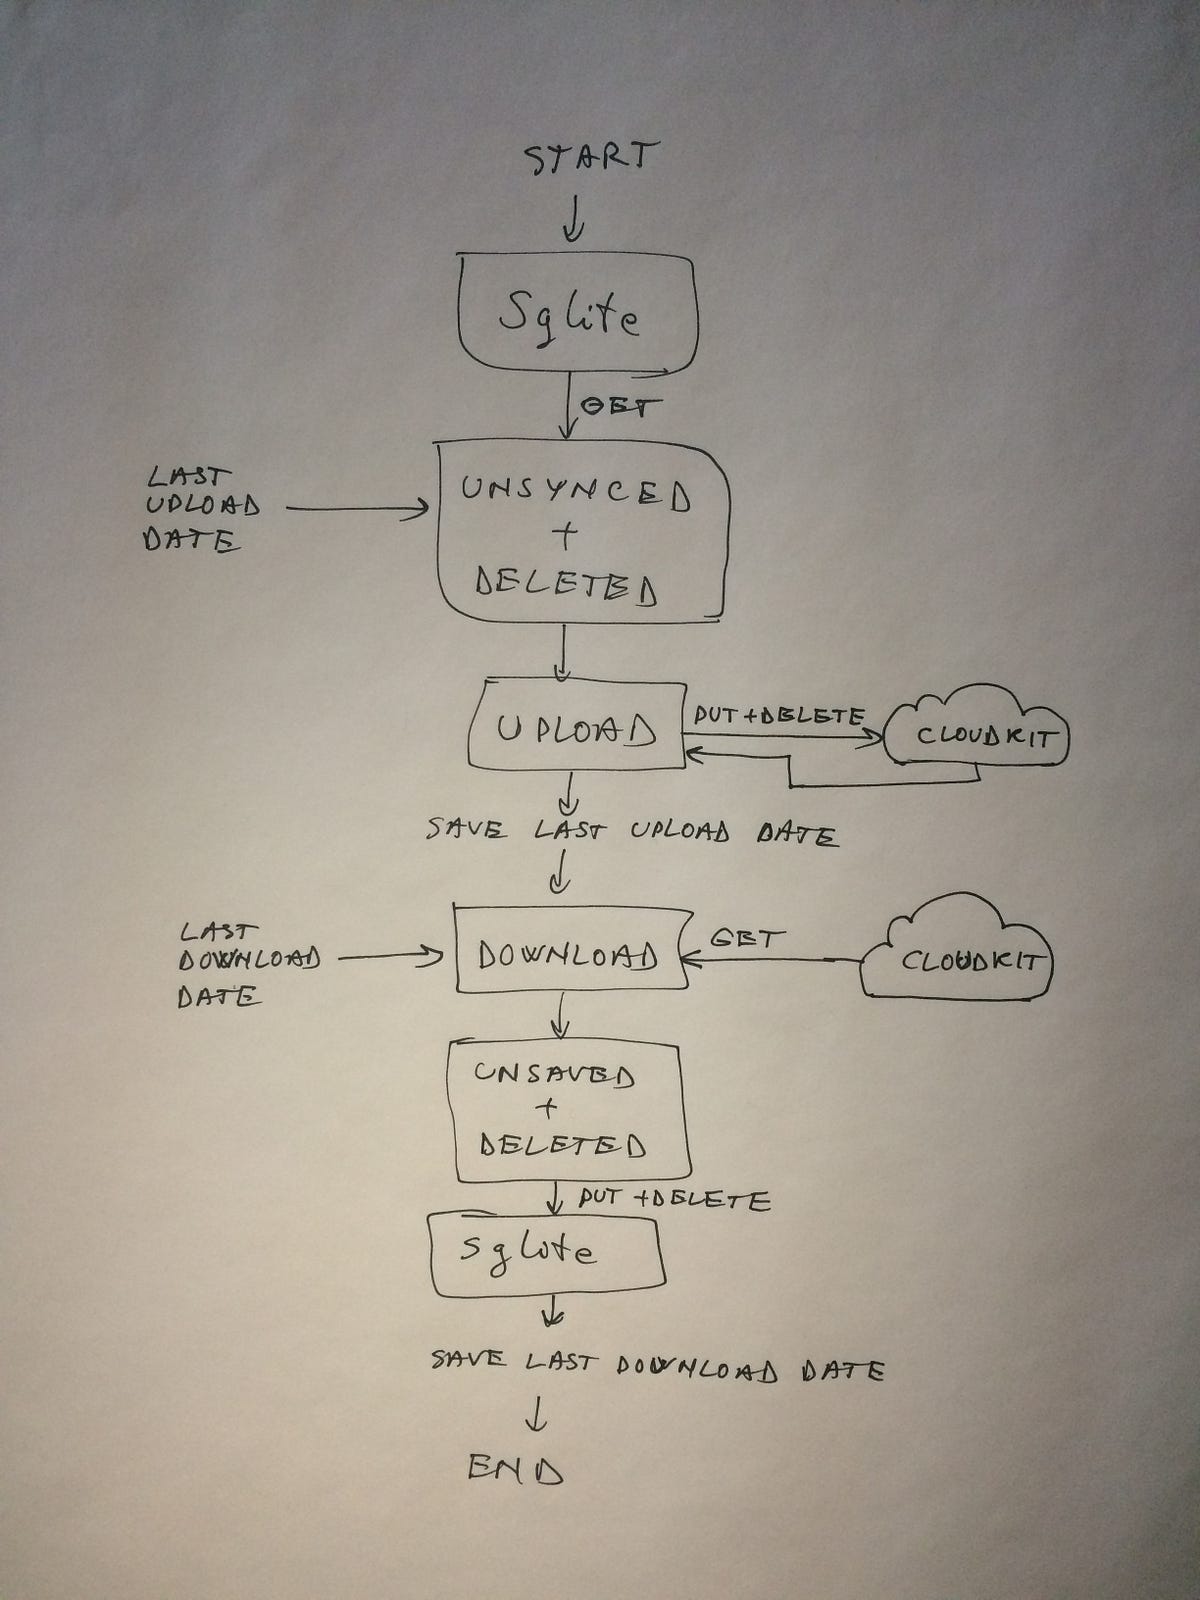 START
Sqlite
GET
LAST
UPLOAD
DATE
UNSYNCED
+
DELETED
UPLOAD
PUT + DELETE
CLOUDKIT
SAVE LAST UPLOAD DATE
LAST
DOWNLOAD
DATE
DOWNLOAD
GET
CLOUDKIT
UNSAVED
+
DELETED
PUT + DELETE
Sqlite
SAVE LAST DOWNLOAD DATE
END